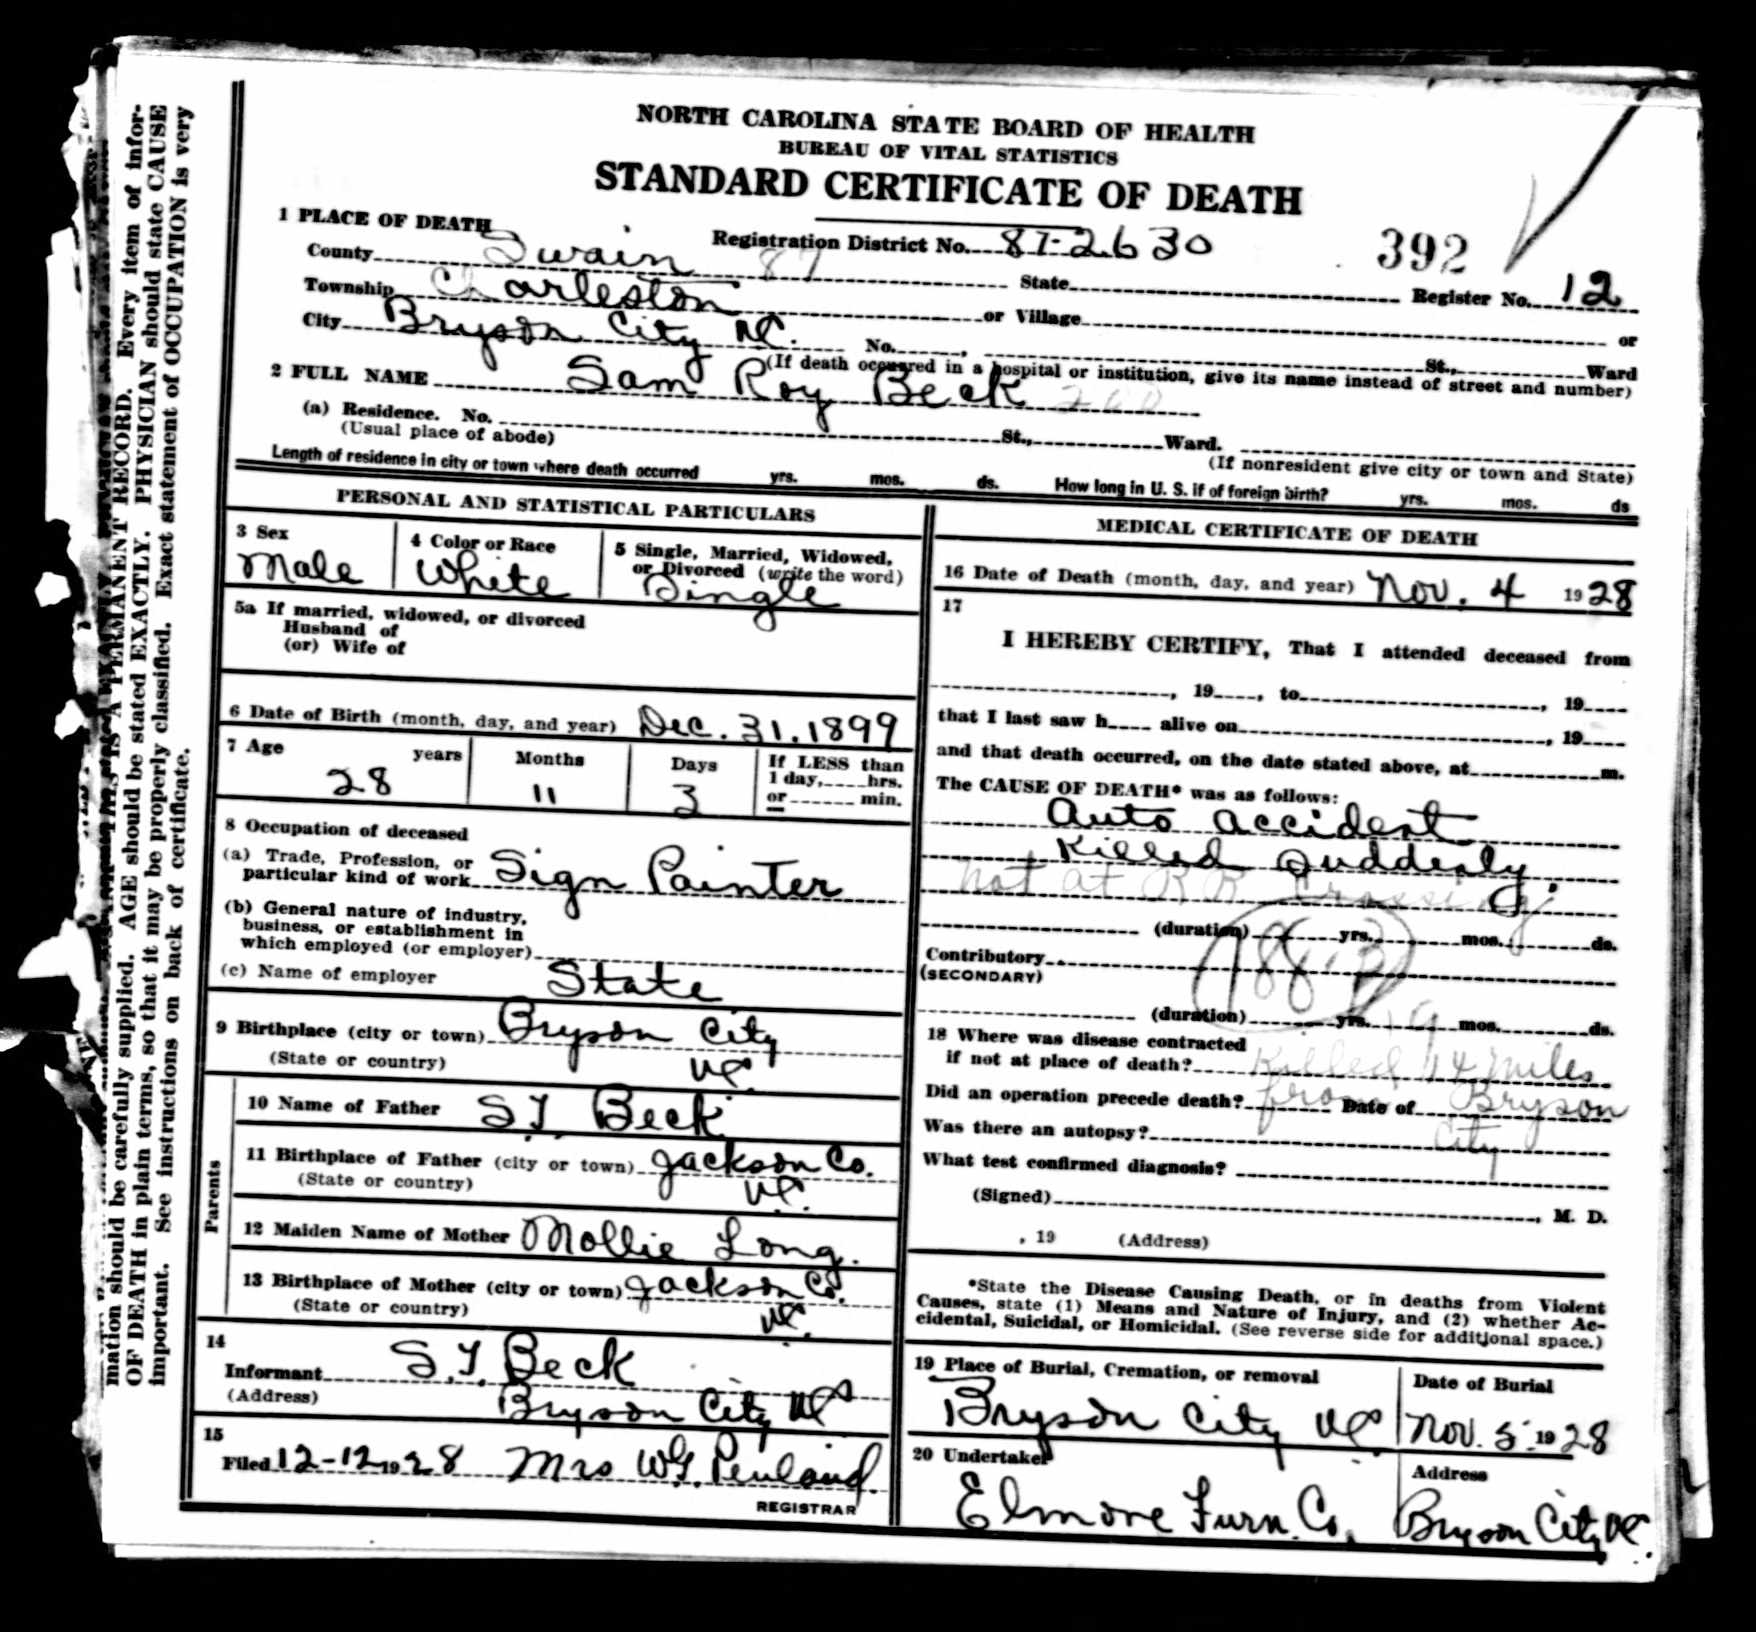 NORTH CAROLINA STATE BOARD OF HEALTH
BUREAU OF VITAL STATISTICS
STANDARD CERTIFICATE OF DEATH
1 PLACE OF DEATH
Registration District No. 87-2630
392
County Swain 87 State Register No. 12
Township Charleston or Village or
City Bryson City N.C. No. , St., Ward
(If death occurred in a hospital or institution, give its name instead of street and number)
2 FULL NAME Sam Roy Beck 200
(a) Residence. No. St., Ward.
(Usual place of abode) (If nonresident give city or town and State)
Length of residence in city or town where death occurred yrs. mos. ds. How long in U. S. if of foreign birth? yrs. mos. ds
PERSONAL AND STATISTICAL PARTICULARS
3 Sex
Male
4 Color or Race
White
5 Single, Married, Widowed,
or Divorced (write the word)
Single
5a If married, widowed, or divorced
Husband of
(or) Wife of
6 Date of Birth (month, day, and year) Dec. 31, 1899
7 Age years Months Days
28 11 3
If LESS than
1 day, hrs.
or min.
8 Occupation of deceased
(a) Trade, Profession, or
particular kind of work Sign Painter
(b) General nature of industry,
business, or establishment in
which employed (or employer)
(c) Name of employer State
9 Birthplace (city or town) Bryson City
(State or country) N.C.
Parents
10 Name of Father S.T. Beck
11 Birthplace of Father (city or town) Jackson Co.
(State or country) N.C.
12 Maiden Name of Mother Mollie Long.
13 Birthplace of Mother (city or town) Jackson Co.
(State or country) N.C.
14
Informant S.T. Beck
(Address) Bryson City N.C.
15
Filed 12-12 1928 Mrs W.G. Penland.
REGISTRAR
MEDICAL CERTIFICATE OF DEATH
16 Date of Death (month, day, and year) Nov. 4 1928
17
I HEREBY CERTIFY, That I attended deceased from
, 19 , to , 19
that I last saw h alive on , 19
and that death occurred, on the date stated above, at m.
The CAUSE OF DEATH* was as follows:
Auto accident
Killed Suddenly.
not at R R Crossing
(duration) yrs. mos. ds.
Contributory
(SECONDARY)
(duration) yrs. mos. ds.
18 Where was disease contracted
if not at place of death? Killed 14 miles
from Bryson
City
Did an operation precede death? Date of
Was there an autopsy?
What test confirmed diagnosis?
(Signed) , M. D.
, 19 (Address)
*State the Disease Causing Death, or in deaths from Violent
Causes, state (1) Means and Nature of Injury, and (2) whether Ac-
cidental, Suicidal, or Homicidal. (See reverse side for additional space.)
19 Place of Burial, Cremation, or removal
Bryson City N.C.
Date of Burial
Nov. 5, 1928
20 Undertaker
Elmore Furn. Co.
Address
Bryson City N.C.
THIS IS A PERMANENT RECORD. Every item of infor-
mation should be carefully supplied. AGE should be stated EXACTLY. PHYSICIAN should state CAUSE
OF DEATH in plain terms, so that it may be properly classified. Exact statement of OCCUPATION is very
important. See instructions on back of certificate.